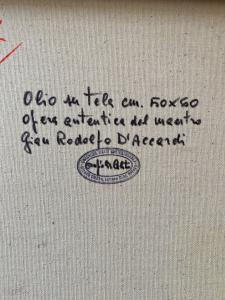 Olio su tela cm. 50x60
opera autentica del maestro
Gian Rodolfo D'Accardi